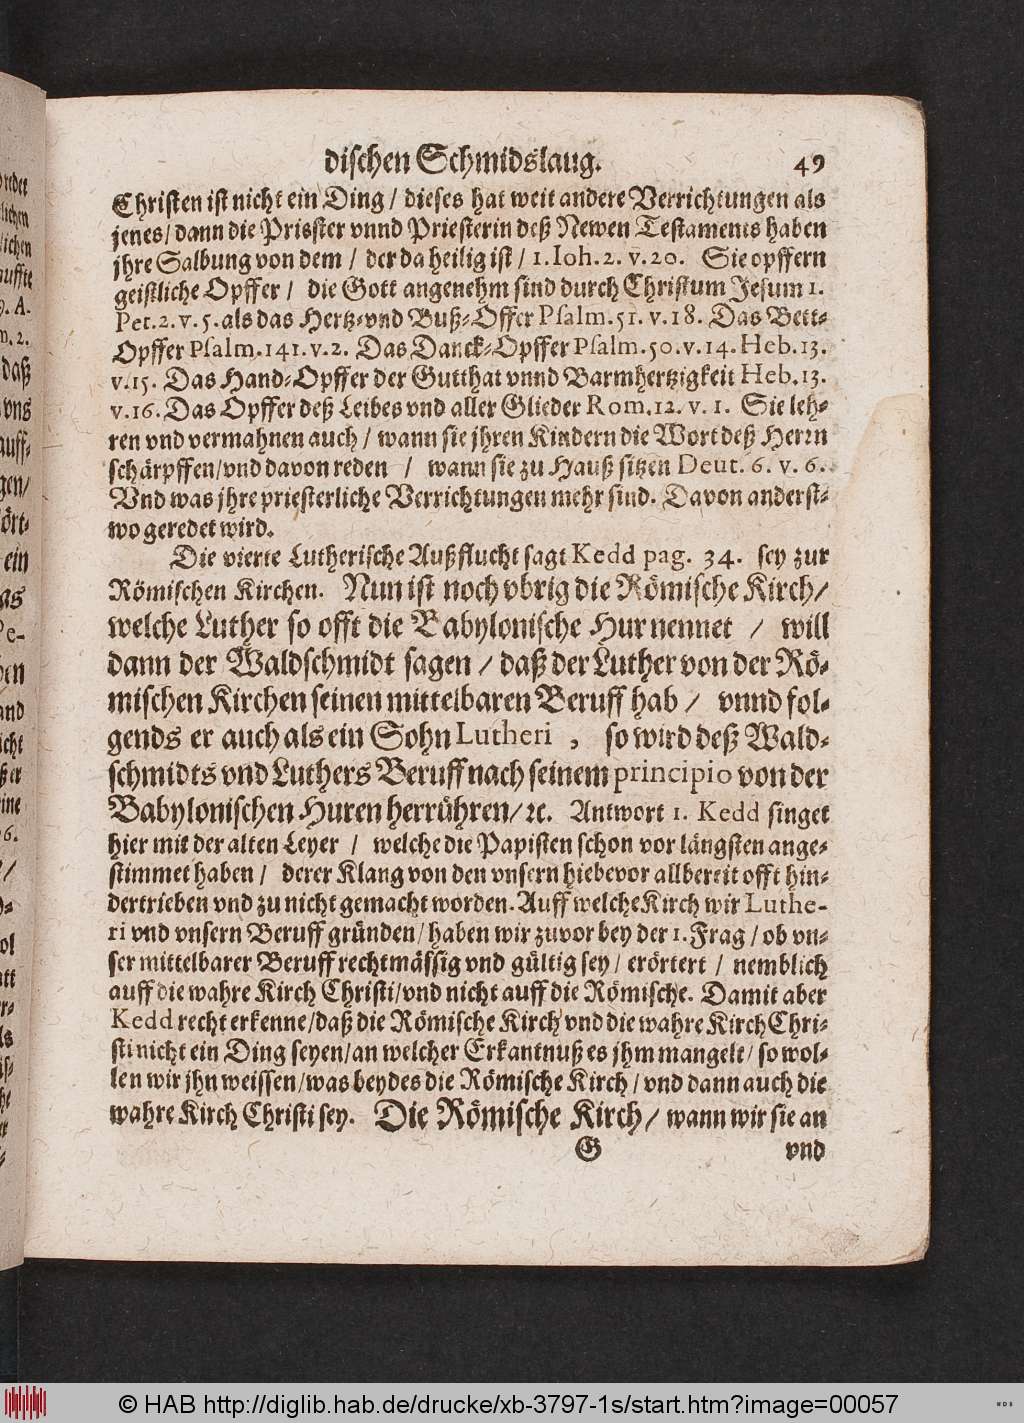 dischen Schmidslaug. 49
Christen ist nicht ein Ding / dieses hat weit andere Verrichtungen als
jenes / dann die Prisster vnnd Priesterin deß Newen Testaments haben
jhre Salbung von dem / der da heilig ist / 1. Ioh. 2. v. 20. Sie opffern
geistliche Opffer / die Gott angenehm sind durch Christum Jesum 1.
Pet. 2. v. 5. als das Hertz- vnd Buß-Offer Psalm. 51. v. 18. Das Bett-
Opffer Psalm. 141. v. 2. Das Danck-Opffer Psalm. 50. v. 14. Heb. 13.
v. 15. Das Hand-Opffer der Gutthat vnnd Barmhertzigkeit Heb. 13.
v. 16. Das Opffer deß Leibes vnd aller Glieder Rom. 12. v. 1. Sie leh-
ren vnd vermahnen auch / wann sie jhren Kindern die Wort deß Herrn
schärpffen / vnd davon reden / wann sie zu Hauß sitzen Deut. 6. v. 6.
Vnd was jhre priesterliche Verrichtungen mehr sind. Davon anderst-
wo geredet wird.
Die vierte Lutherische Außflucht sagt Kedd pag. 34. sey zur
Römischen Kirchen. Nun ist noch vbrig die Römische Kirch /
welche Luther so offt die Babylonische Hur nennet / will
dann der Waldschmidt sagen / daß der Luther von der Rö-
mischen Kirchen seinen mittelbaren Beruff hab / vnnd fol-
gends er auch als ein Sohn Lutheri , so wird deß Wald-
schmidts vnd Luthers Beruff nach seinem principio von der
Babylonischen Huren herrühren / ꝛc. Antwort 1. Kedd singet
hier mit der alten Leyer / welche die Papisten schon vor längsten ange-
stimmet haben / derer Klang von den vnsern hiebevor allbereit offt hin-
dertrieben vnd zu nicht gemacht worden. Auff welche Kirch wir Luthe-
ri vnd vnsern Beruff gründen / haben wir zuvor bey der 1. Frag / ob vn-
ser mittelbarer Beruff rechtmässig vnd gültig sey / erörtert / nemblich
auff die wahre Kirch Christi / vnd nicht auff die Römische. Damit aber
Kedd recht erkenne / daß die Römische Kirch vnd die wahre Kirch Chri-
sti nicht ein Ding seyen / an welcher Erkantnuß es jhm mangelt / so wol-
len wir jhn weissen / was beydes die Römische Kirch / vnd dann auch die
wahre Kirch Christi sey. Die Römische Kirch / wann wir sie an
G vnd
© HAB http://diglib.hab.de/drucke/xb-3797-1s/start.htm?image=00057